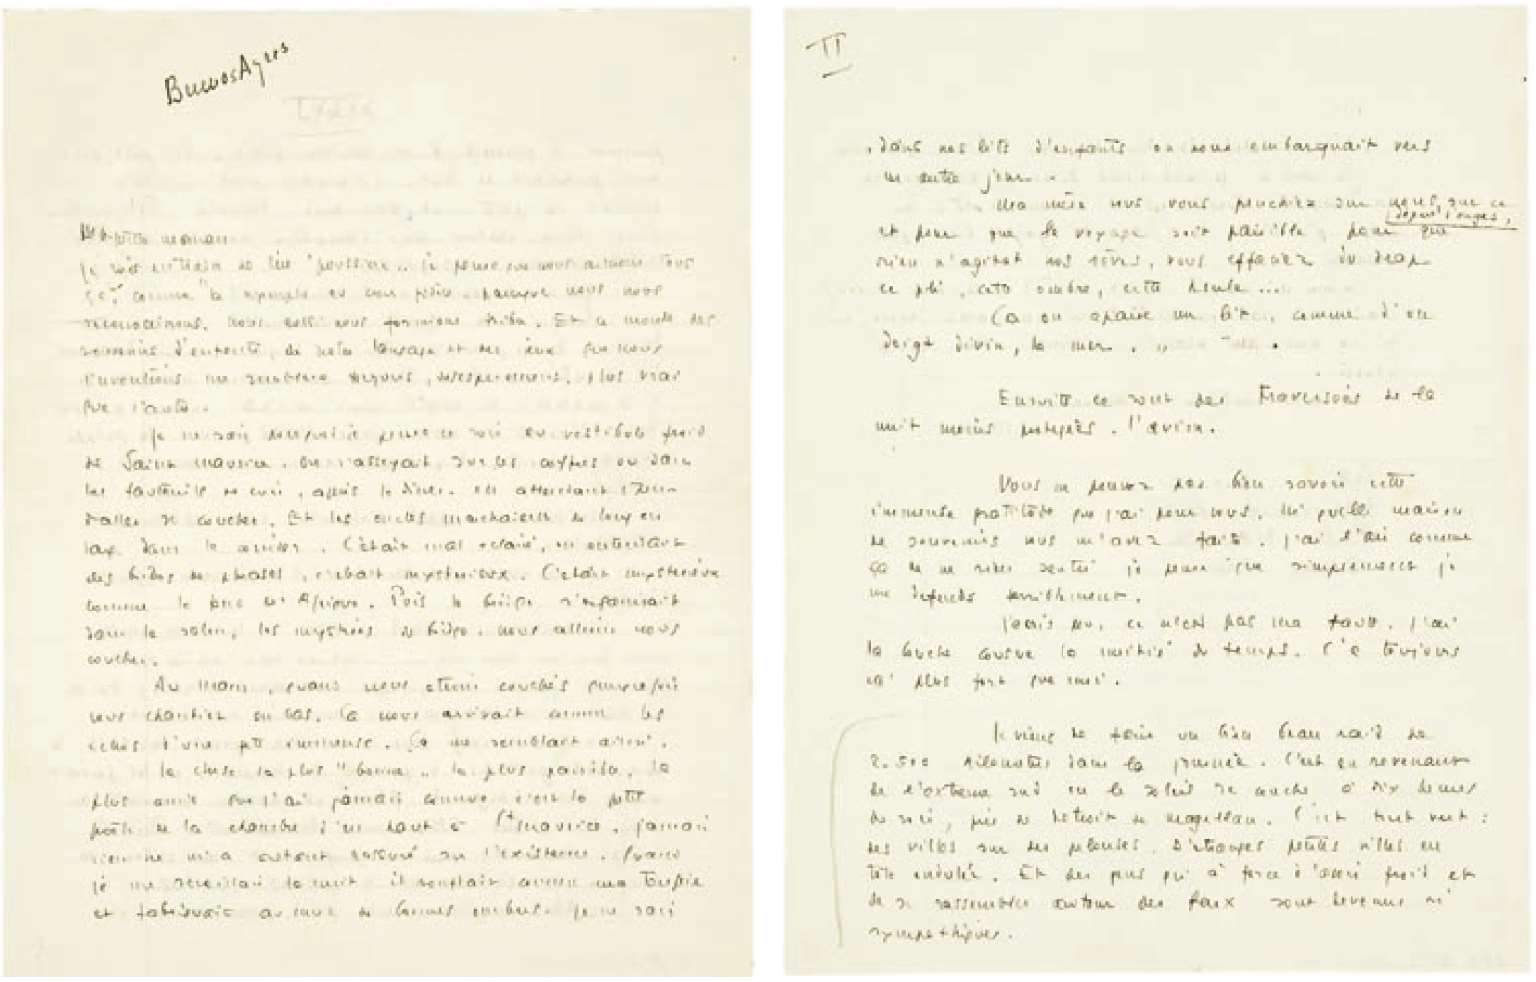 Buenos Ayres
Ma petite maman
Je suis en train de lire "poussière" je pense que nous aimons tous
ça, comme la nymphe au cœur fidèle parceque nous nous
reconnaissons. Nous aussi nous formions tribu. Et ce monde de
souvenirs d'enfants, de notre langage et des jeux que nous
inventions me semblera toujours désespérément plus vrai
que l'autre.
Je ne sais pourquoi je pense ce soir au vestibule froid
de Saint Maurice. On s'asseyait sur les coffres ou dans
les fauteuils de cuir, après le dîner, en attendant l'heure
d'aller se coucher. Et les oncles marchaient de long en
large dans le corridor. C'était mal éclairé, on entendait
des bribes de phrases, c'était mystérieux. C'était mystérieux
comme le fond de l'Afrique. Puis le bridge s'organisait
dans le salon, les mystères du bridge. Nous allions nous
coucher.
Au Mans, quand nous étions couchés quelquefois
vous chantiez en bas. Ça nous arrivait comme les
échos d'une fête immense. Ça me semblait ainsi.
La chose la plus "bonne" la plus paisible, la
plus amie que j'ai jamais connue c'est le petit
poêle de la chambre d'en haut à St Maurice. Jamais
rien ne m'a autant rassuré sur l'existence. Quand
je me réveillais la nuit il ronflait comme une toupie
et fabriquait au mur de bonnes ombres. Je ne sais
II
dans nos lits d'enfants on nous embarquait vers
un autre jour.
Ma mère vous vous penchiez sur nous, sur ce
départ d'anges,
et pour que le voyage soit paisible, pour que
rien n'agitât nos rêves, vous effaciez du drap
ce pli, cette ombre, cette houle...
Ca on apaise un lit, comme d'un
doigt divin, la mer.
Ensuite ce sont des traversées de la
nuit moins protégées. l'avion.
Vous ne pouvez pas bien savoir cette
immense gratitude que j'ai pour vous. Ni quelle maison
de souvenirs vous m'avez faite. j'ai l'air comme
ça de ne rien sentir je pense que simplement je
me défends terriblement.
J'écris peu, ce n'est pas ma faute. j'ai
la bouche cousue la moitié du temps. Ç'a toujours
été plus fort que moi.
Je viens de faire un bien beau raid de
2.500 kilomètres dans la journée. C'est en revenant
de l'extrême sud où le soleil se couche à dix heures
du soir, près du détroit de Magellan. C'est tout vert :
des villes sur des pelouses. D'étranges petites villes en
tôle ondulée. Et des gens qui à force d'avoir froid et
de se rassembler autour des feux sont devenus si
sympathiques.